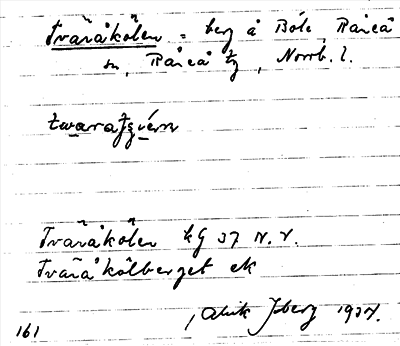 Tväråkölen = berg å Böle, Råneå
sn, Råneå tg, Norrb. l.
Tväråkölen kG 37 N.V.
Tväråkölberget ek
Isberg 1934.
161